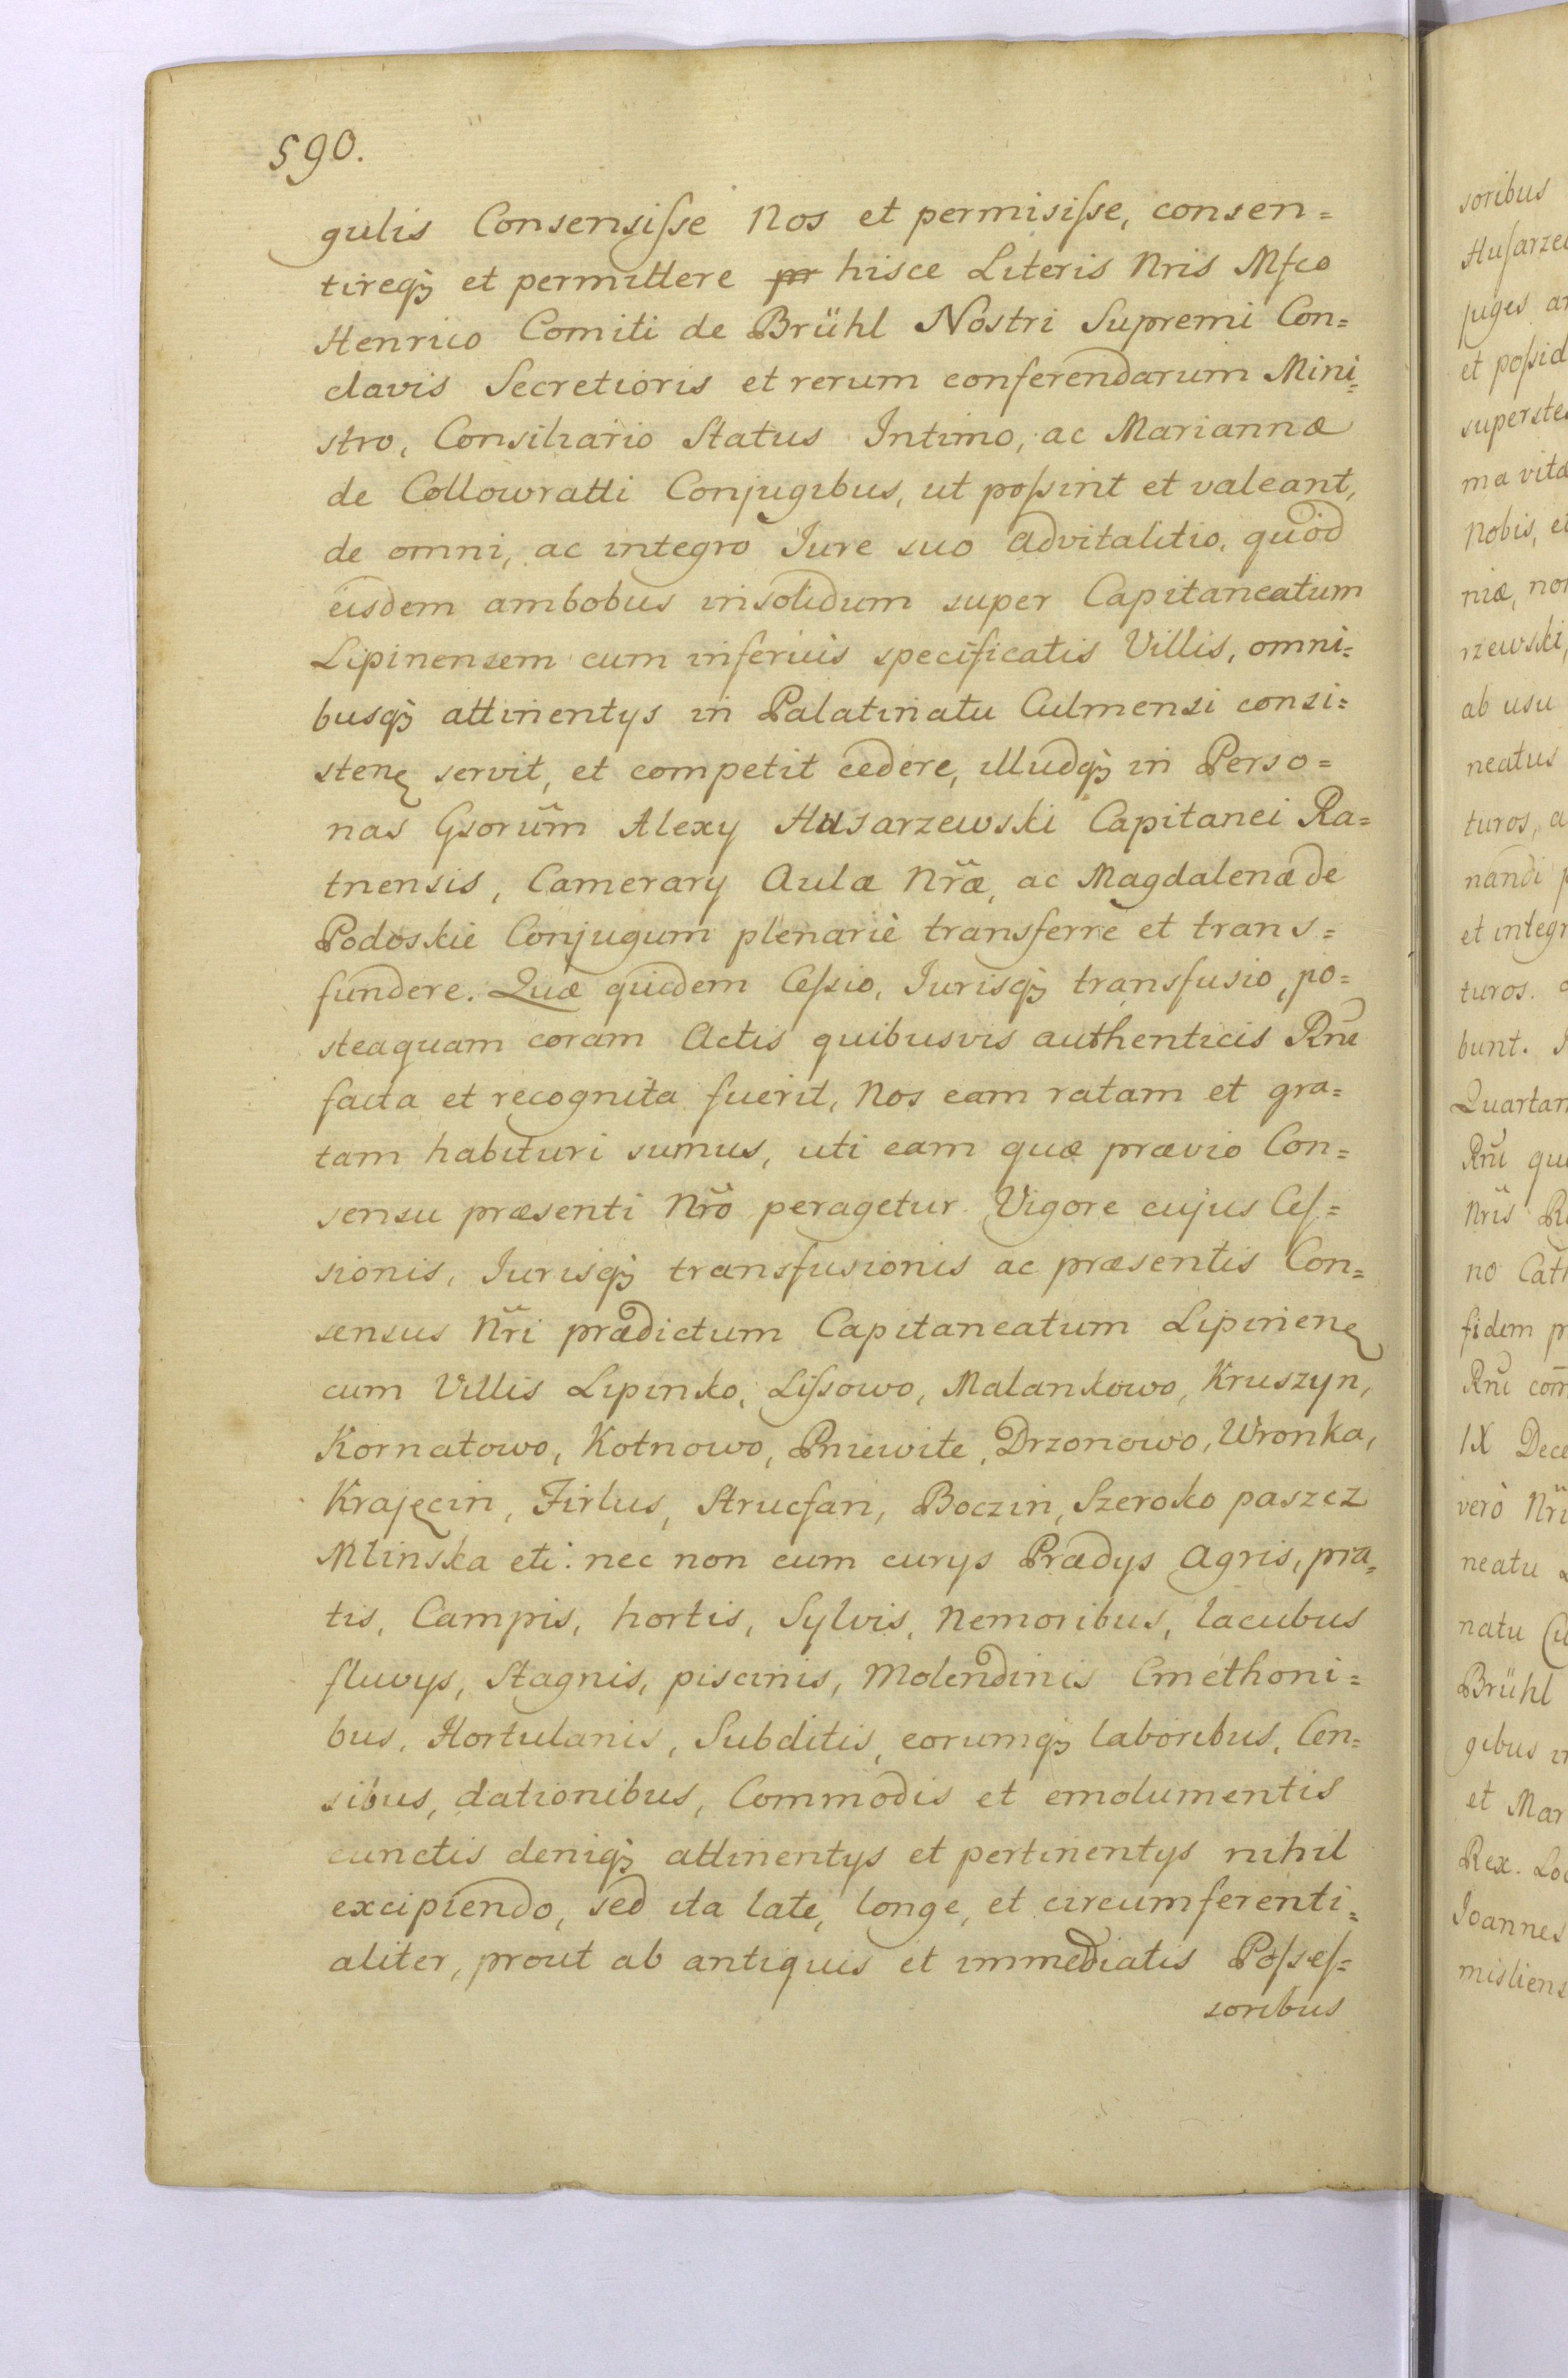 590.
gulis Consensiſse Nos et permisiſse, consen=
tireqꝫ et permittere hisce Literis Nris Mfco
Henrico Comiti de Brühl Nostri Supremi Con=
clavis Secretioris et rerum conferendarum Mini=
stro, Consiliario Status Intimo, ac Mariannæ
de Collowratti Conjugibus, ut poſsint et valeant,
de omni, ac integro Iure suo advitalitio, quod
eisdem ambobus insolidum super Capitaneatum
Lipinensem cum inferius specificatis Villis, omni=
busqꝫ attinentys in Palatinatu Culmensi consi=
stenę servit, et competit cedere, illudqꝫ in Perso=
nas Gsorum̃ Alexy Husarzewski Capitanei Ra=
tnensis, Camerary Aulæ Nr̃æ, ac Magdalenæ de
Podoskie Conjugum plenariè transferre et trans=
fundere. Quæ quidem Ceſsio, Iurisqꝫ transfusio, po=
steaquam coram Actis quibusvis authenticis Rñi
facta et recognita fuerit, Nos eam ratam et gra=
tam habituri sumus, uti eam quæ prævio Con=
sensu præsenti Nr̃o peragetur. Vigore cujus Ceſ=
sionis, Iurisqꝫ transfusionis ac præsentis Con=
sensus Nr̃i prædictum Capitaneatum Lipinenę
cum Villis Lipinko, Liſsowo, Malankowo, Kruszyn,
Kornatowo, Kotnowo, Pniewite, Drzonowo, Wronka,
Krajęcin, Firlus, Strucfan, Boczin, Szeroko paszcz
Mlinska etc: nec non cum curys Prædys Agris, pra=
tis, Campis, hortis, Sylvis, Nemoribus, lacubus
fluvys, Stagnis, piscinis, Molendinis Cmethoni=
bus, Hortulanis, Subditis, eorumqꝫ laboribus, Cen=
sibus, dationibus, Commodis et emolumentis
cunctis deniqꝫ attinentys et pertinentys nihil
excipiendo, sed ita late, longe, et circumferenti=
aliter, prout ab antiquis et immediatis Poſseſ=
soribus
soribus
Huſarzew
juges
et poſsid
superste
ma vitæ
Nobis, et
niæ, non
rzewski,
ab usu
neatus
turos, a
nandi p
et integr
turos.
bunt.
Quartam
Rñi qu
Nr̃is R
no Cath
fidem p
Rñi com̃
IX Dece
verò Nr̃i
neatu
natu Cu
Brühl
gibus in
et Mar
Rex. Loc
Joannes
misliens